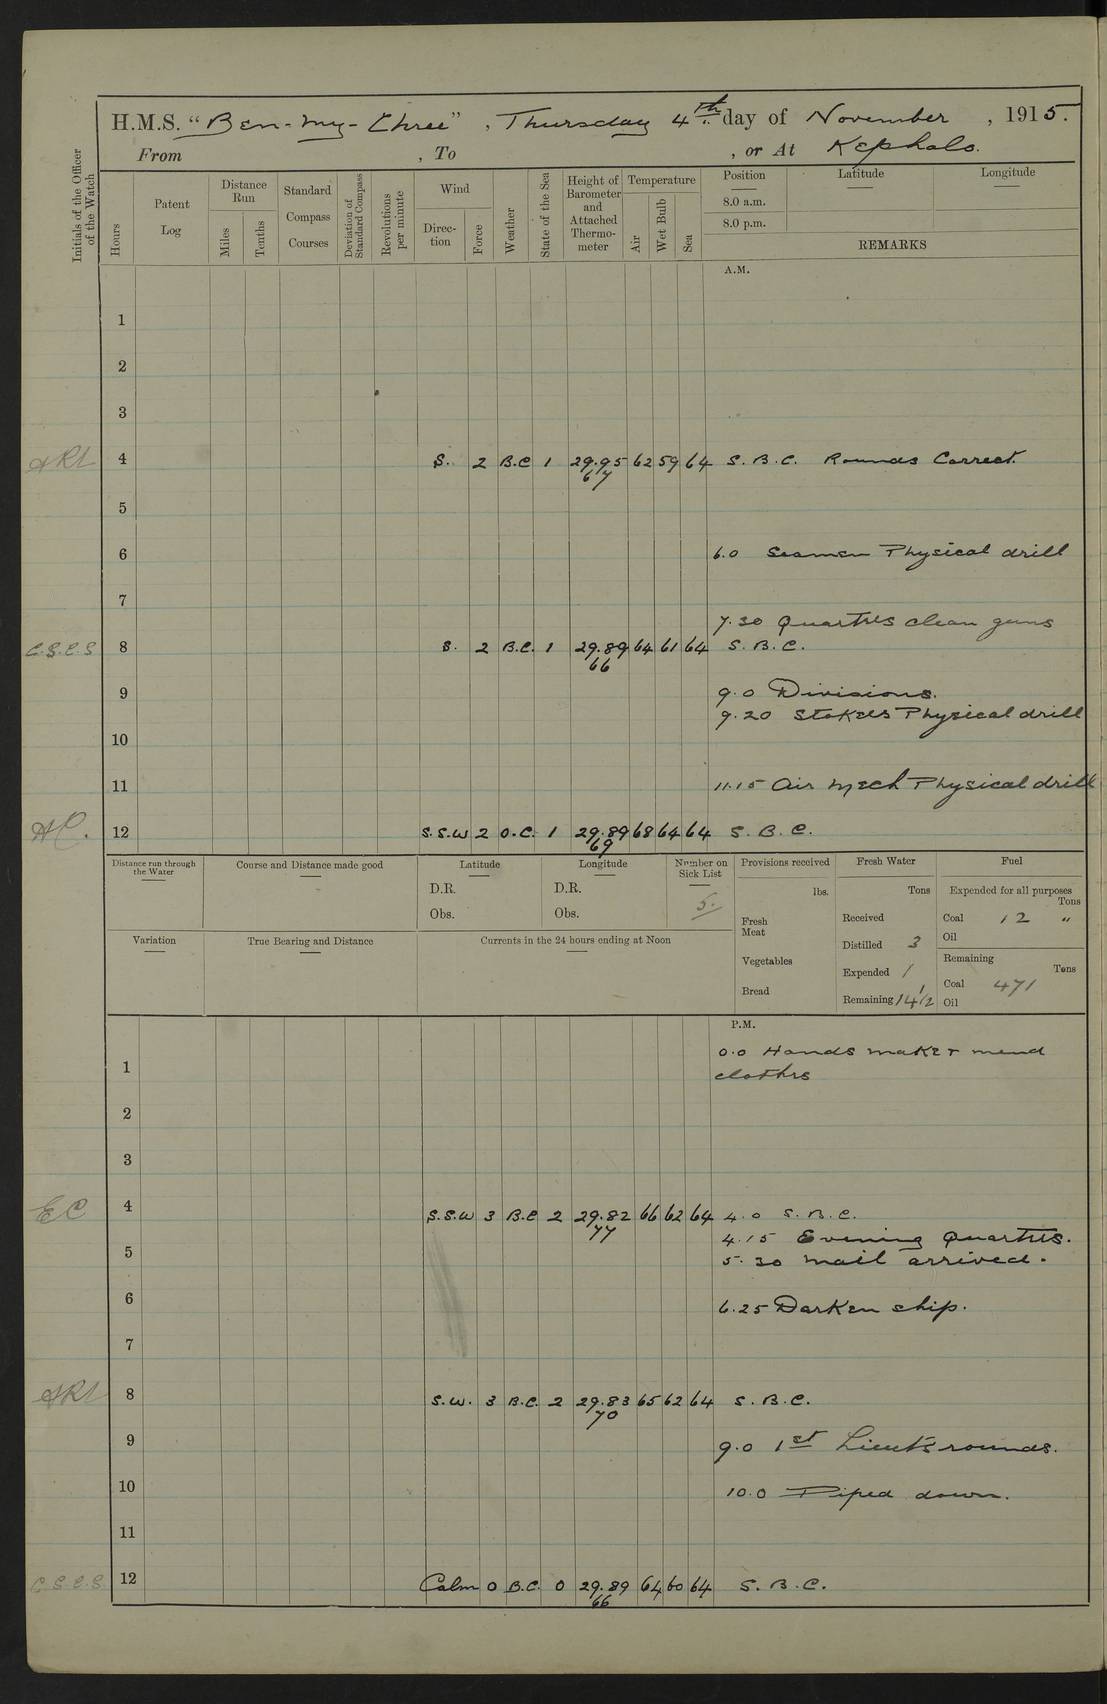 H.M.S. "Ben-my-Chree", Thursday 4th day of November, 1915.
From , To , or At Kephalo.
Initials of the Officer of the Watch
Hours
Patent Log
Distance Run
Miles
Tenths
Standard Compass Courses
Deviation of Standard Compass
Revolutions per minute
Wind
Direction
Force
Weather
State of the Sea
Height of Barometer and Attached Thermometer
Temperature
Air
Wet Bulb
Sea
Position
Latitude
Longitude
8.0 a.m.
8.0 p.m.
REMARKS
A.M.
1
2
3
4 S. 2 B.C 1 29.95 62 59 64 S.B.C. Rounds Correct.
67
5
6 6.0 Seamen Physical drill
7
7.30 Quarters clean guns
C.S.E.S 8 S. 2 B.C. 1 29.89 64 61 64 S.B.C.
66
9 9.0 Divisions.
9.20 Stokers Physical drill
10
11 11.15 Air Mech Physical drill
AC. 12 S.S.W 2 O.C. 1 29.89 68 64 64 S.B.C.
69
Distance run through the Water
Course and Distance made good
Latitude
D.R.
Obs.
Longitude
D.R.
Obs.
Number on Sick List
5.
Provisions received
lbs.
Fresh Meat
Vegetables
Bread
Fresh Water
Tons
Received
Distilled 3
Expended 1
Remaining 14 1/2
Fuel
Expended for all purposes
Tons
Coal 12 "
Oil
Remaining
Tons
Coal 471
Oil
Variation
True Bearing and Distance
Currents in the 24 hours ending at Noon
P.M.
0.0 Hands make & mend
1 clothes
2
3
EC 4 S.S.W 3 B.C 2 29.82 66 62 64 4.0 S.B.C.
77
4.15 Evening Quarters.
5 5.30 Mail arrived.
6 6.25 Darken ship.
7
8 S.W. 3 B.C. 2 29.83 65 62 64 S.B.C.
70
9 9.0 1st Lieut's rounds.
10 10.0 Piped down.
11
C.S.E.S. 12 Calm 0 B.C. 0 29.89 64 60 64 S.B.C.
66